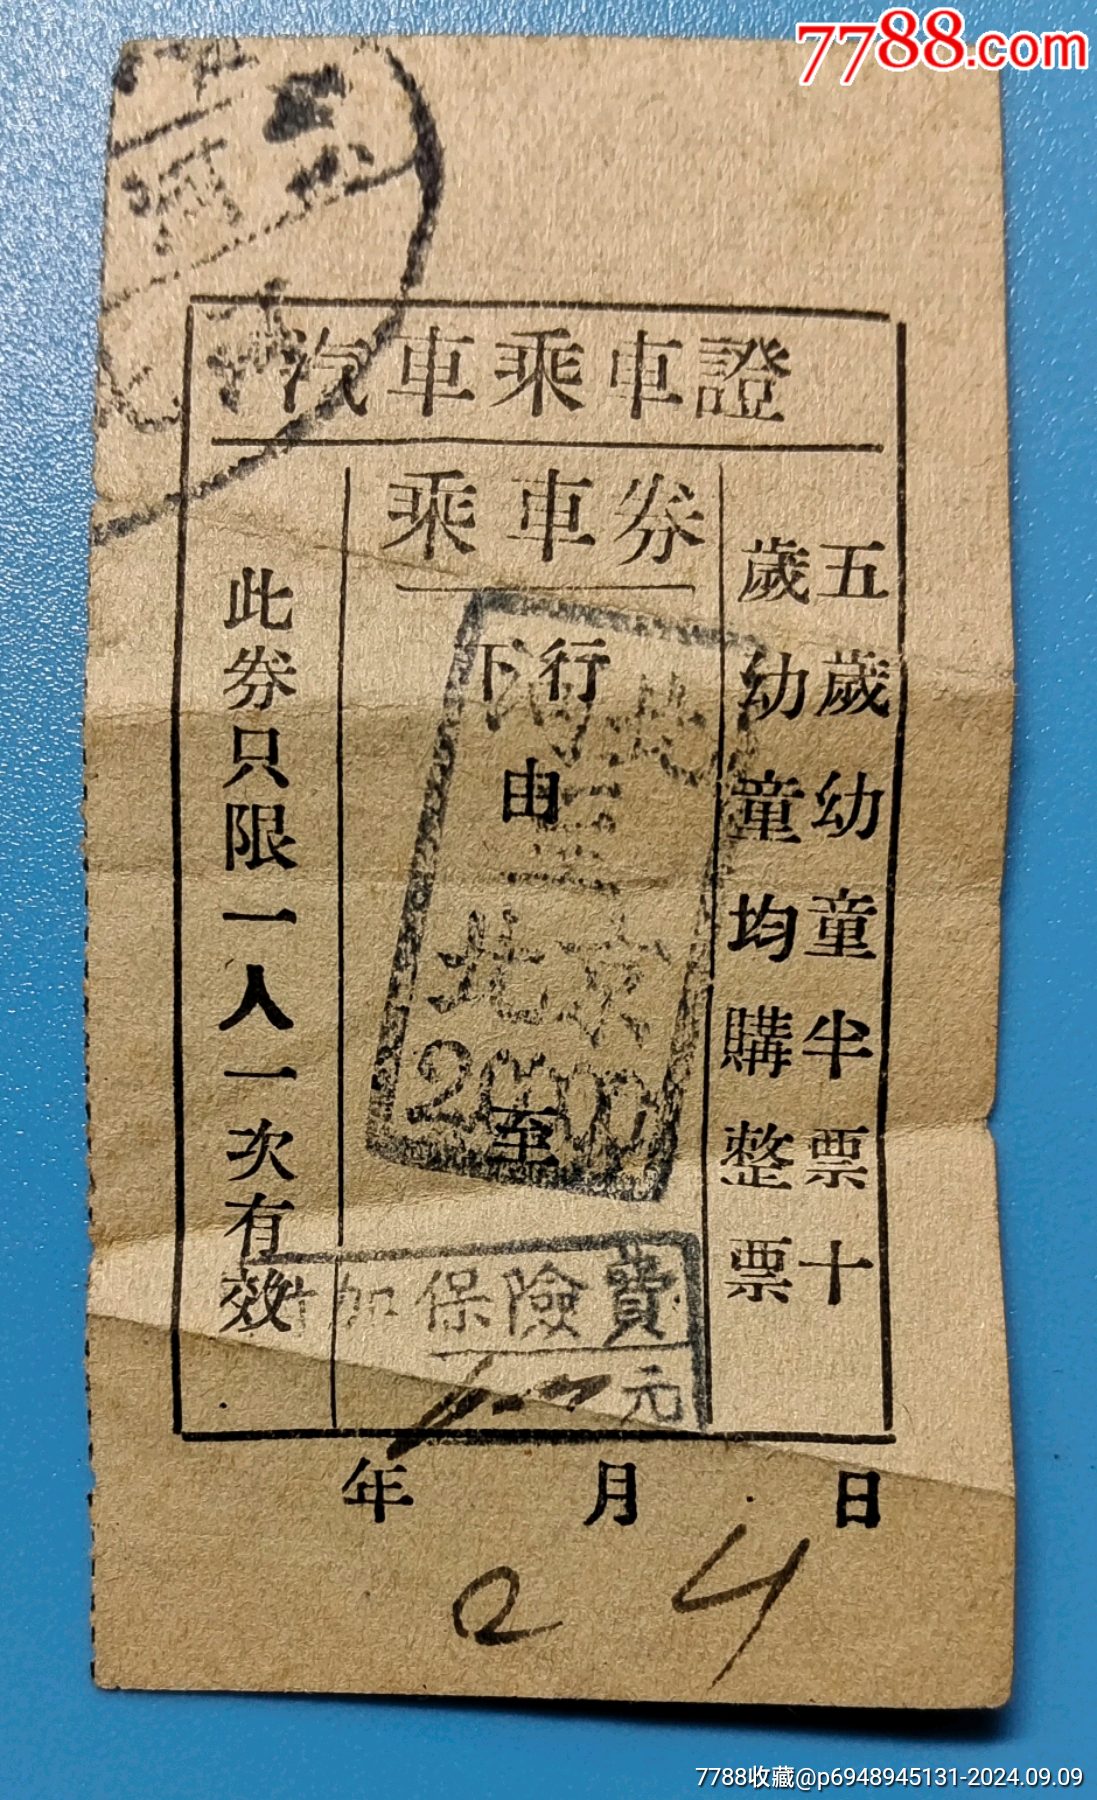 7788.com
河
汽車乘車證
乘車券
五歲幼童半票十
歲幼童均購整票
下行
由
北京
20000
至
此券只限一人一次有效
附加保險費
元
年 月 日
2 4
7788收藏@p6948945131-2024.09.09